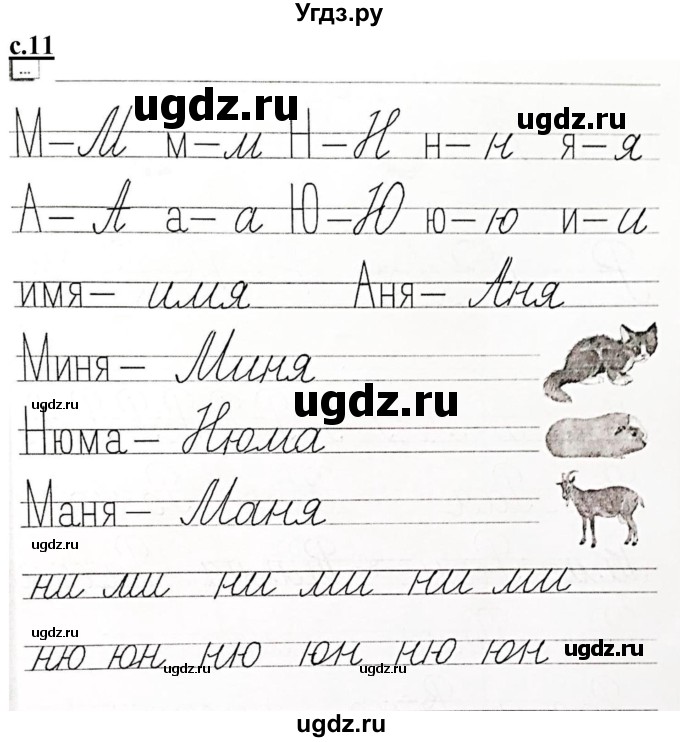 Угдз.ру
с.11
...
ugdz.ru
ugdz.ru
М – М м – м Н – Н н – н я – я
А – А а – а Ю – Ю ю – ю и – и
имя – имя Аня – Аня
Миня – Миня
ugdz.ru
ugdz.ru
Нюма – Нюма
Маня – Маня
ugdz.ru
ни ми ни ми ни ми
ugdz.ru
ugdz.ru
ню юн ню юн ню юн
ugdz.ru
ugdz.ru
ugdz.ru